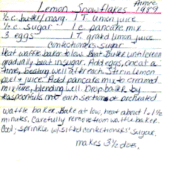 Lemon Snowflakes
½ c. butter/marg. 1 T. lemon juice
½ c. sugar 1 c. pancake mix
3 eggs 1 T. grated lemon juice
confectioners sugar
Heat waffle baker to low. Beat butter until
gradually beat in sugar. Add eggs, one at a
time, beating well after each. Stir in lemon
peel & juice. Add pancake mix to creamed
mixture, blending well. Drop batter by
teaspoonfuls onto each section of preheated
waffle baker. Bake at low, heat about 1-1½
minutes. Carefully remove from waffle baker.
Cool; sprinkle w/ sifted confectioners' sugar.
makes 3½ doz.